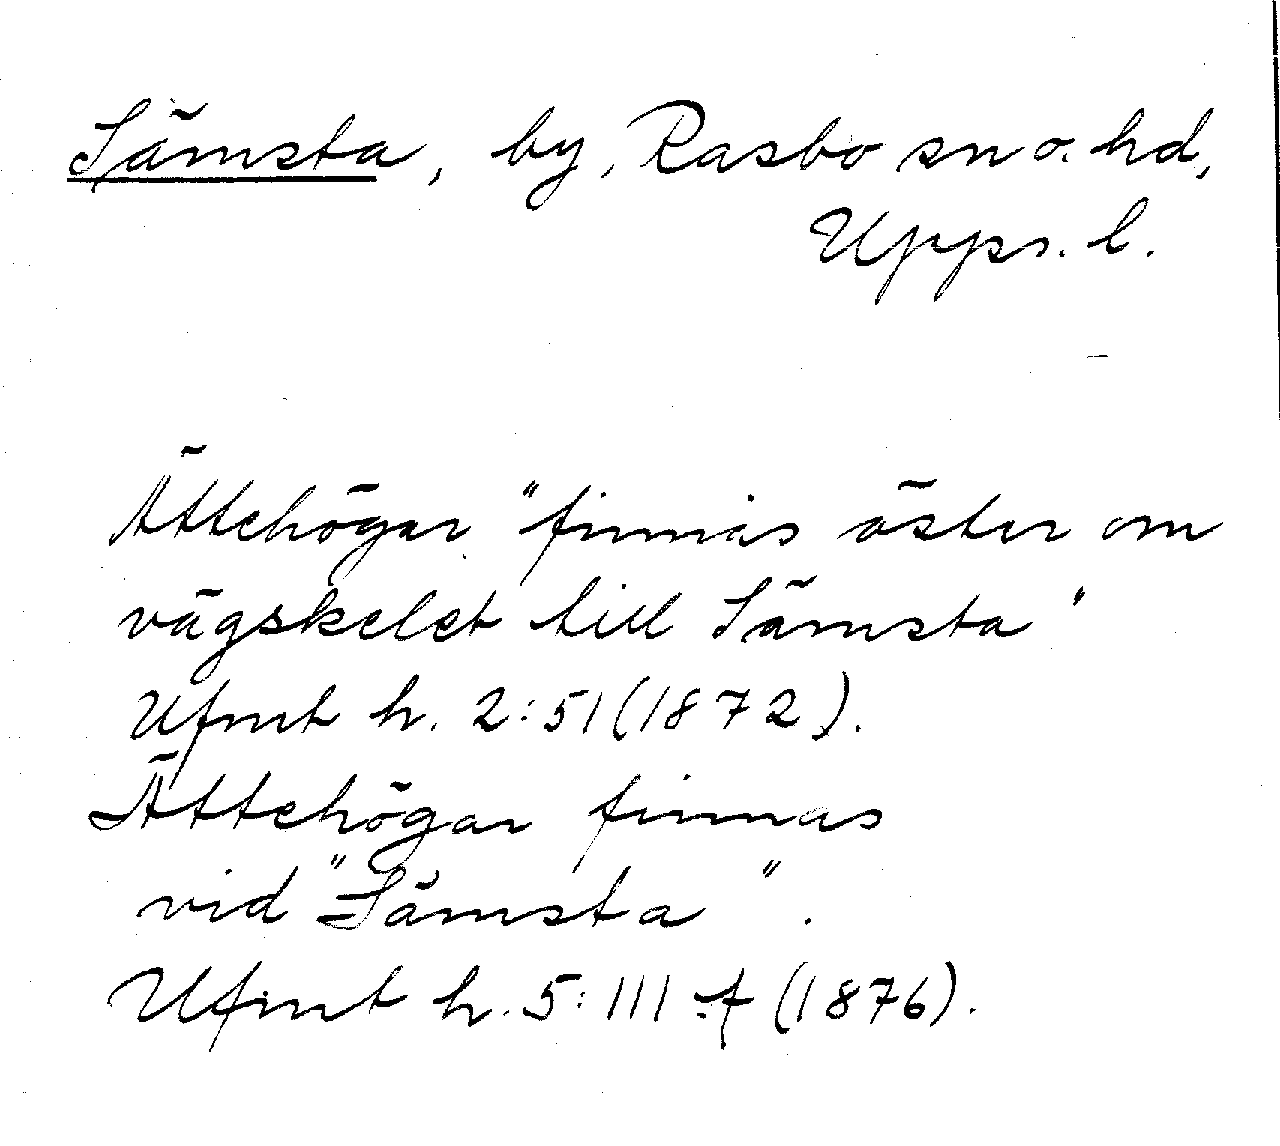 Sämsta, by, Rasbo sn o. hd,
Upps. l.
Ättehögar "finnas öster om
vägskelet till Sämsta"
Ufmt h. 2:51 (1872).
Ättehögar finnas
vid "Sämsta".
Ufmt h. 5: III f (1876).